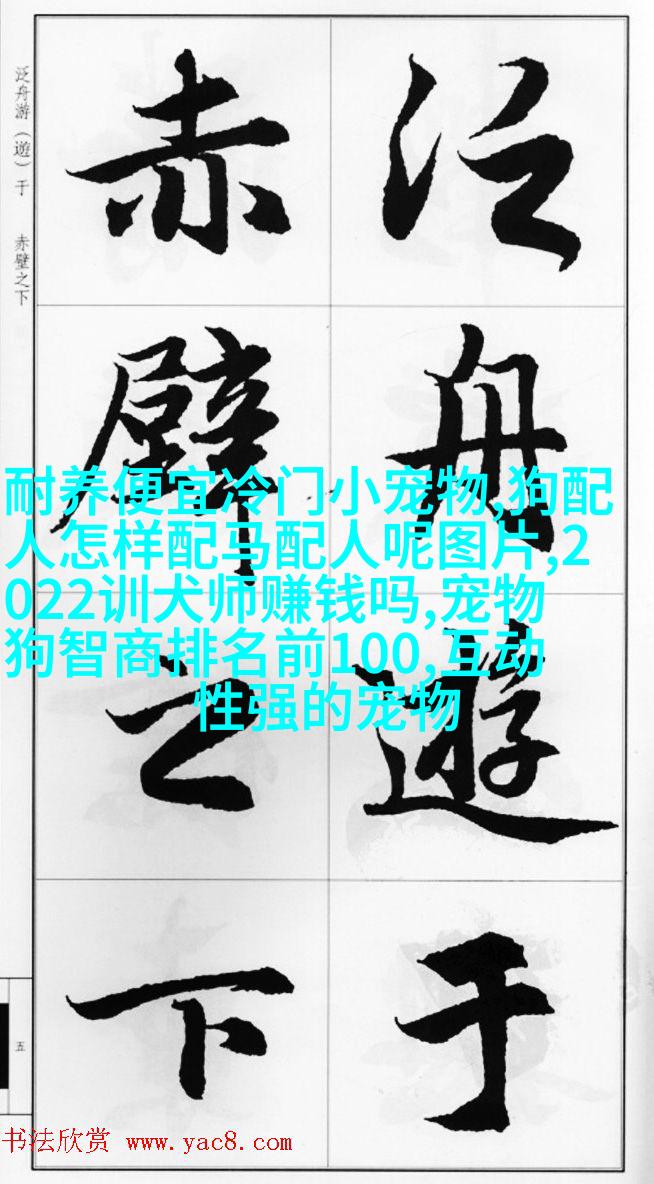 泛舟游（遊）于　赤壁之下
泛舟遊于
赤壁之下
耐养便宜冷门小宠物,狗配
人怎样配马配人呢图片,2
022训犬师赚钱吗,宠物
狗智商排名前100,互动
性强的宠物
五
书法欣赏 www.yac8.com